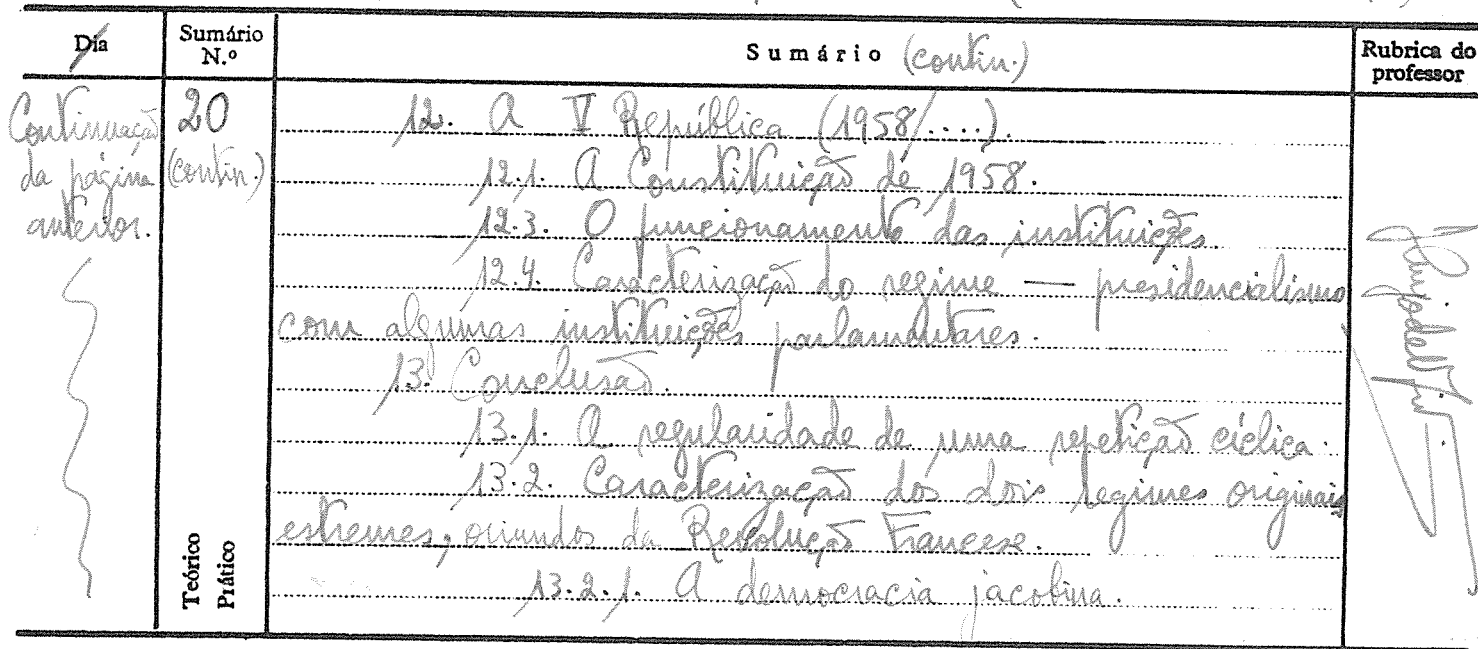 Dia
Sumário N.º
Sumário (contin.)
Rubrica do professor
Continuação da página anterior.
20 (contin.)
12. A V República (1958/....).
12.1. A Constituição de 1958.
12.3. O funcionamento das instituições
12.4. Caracterização do regime — presidencialismo
com algumas instituições parlamentares.
13. Conclusão.
13.1. A regularidade de uma repetição cíclica.
13.2. Caracterização dos dois regimes originais
estremes, oriundos da Revolução Francesa.
13.2.1. A democracia jacobina.
Teórico
Prático